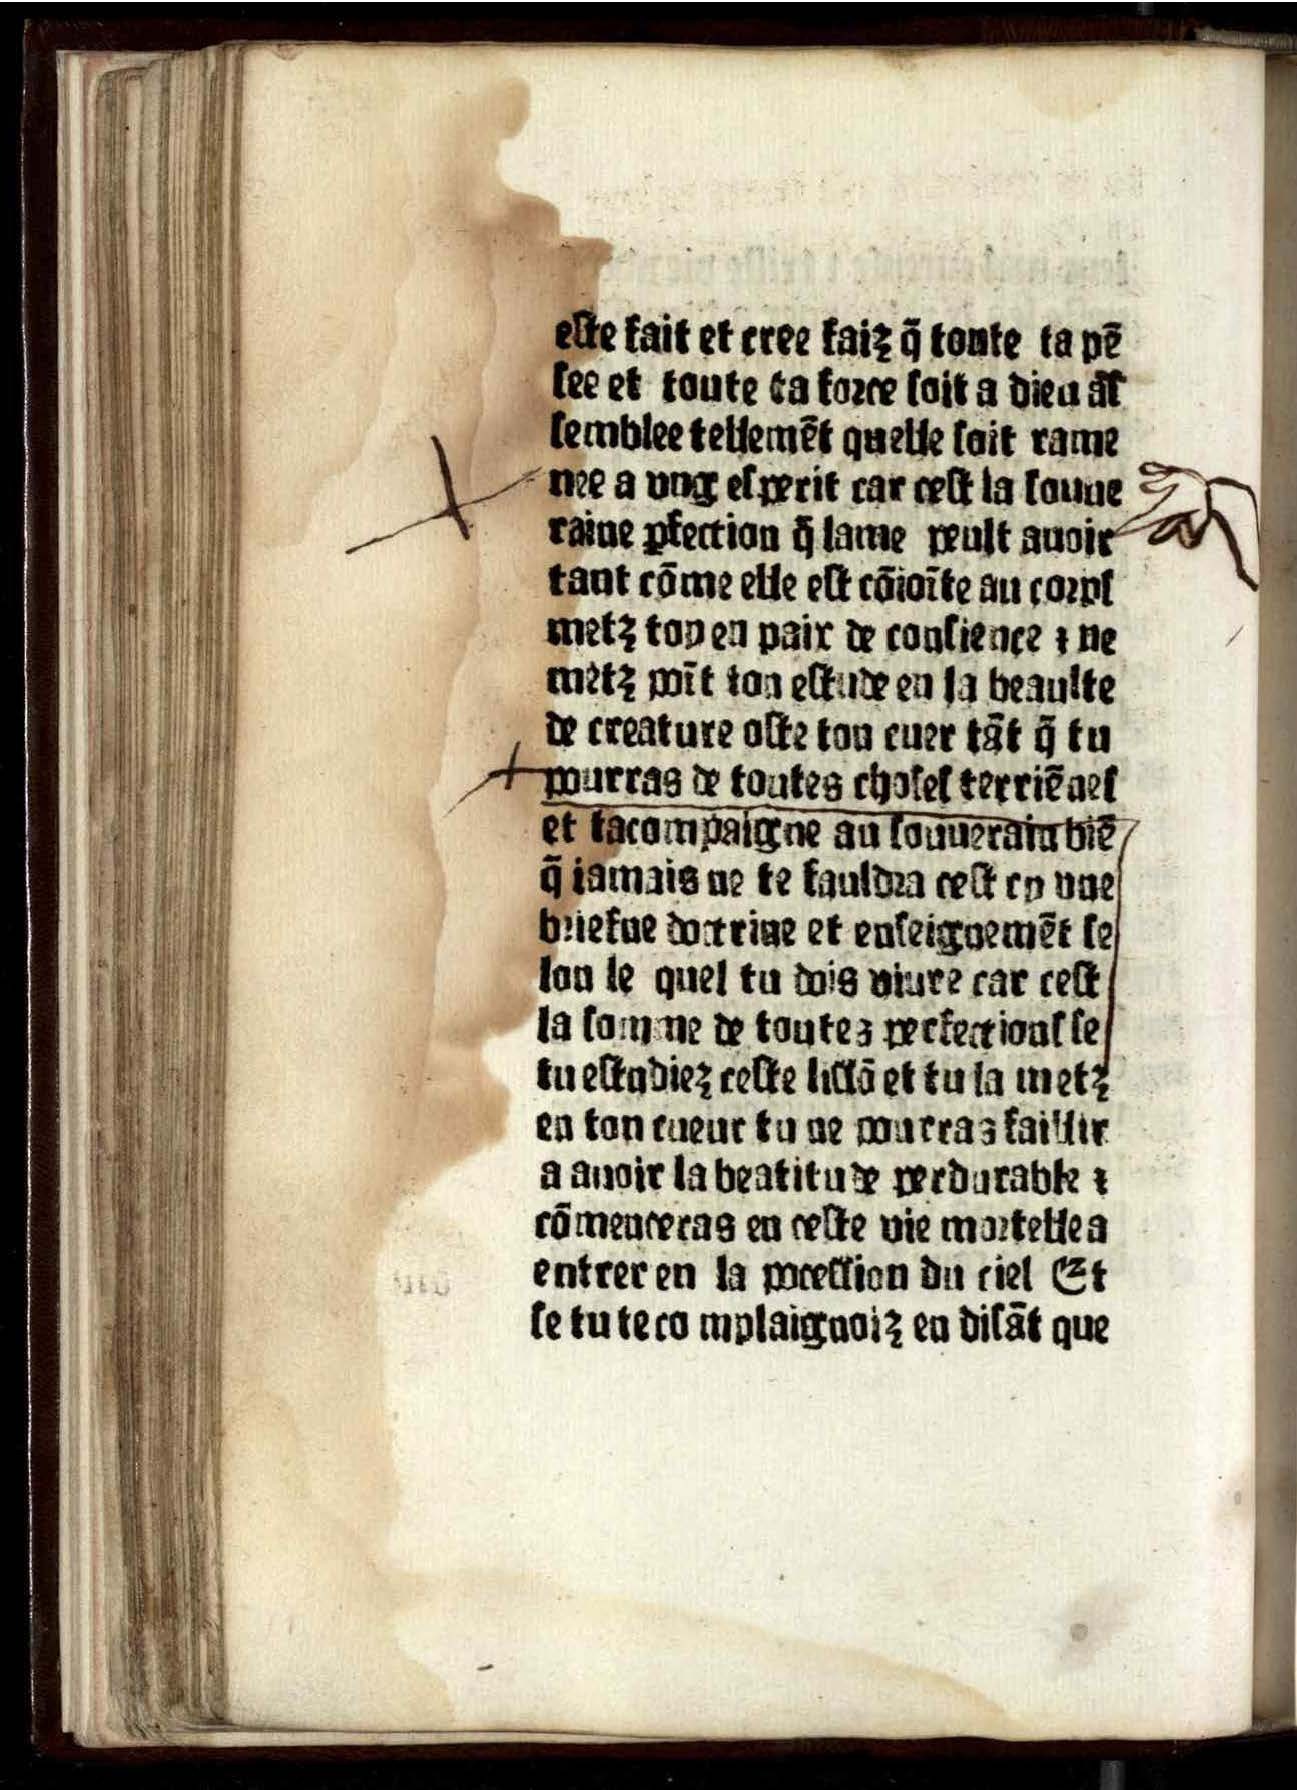 este fait et cree faiz q̃ toute ta pẽ
see et toute ta force soit a dieu as̃
semblee tellemẽt quelle soit rame
nee a vng esperit car cest la souue
raine ꝑfection q̃ lame peult auoir
tant cõme elle est cõioĩte au corps
metz toy en paix de consience ⁊ ne
metz poĩt ton estude en la beaulte
de creature oste ton cuer tãt q̃ tu
pourras de toutes choses terriẽnes
et tacompaigne au souuerain biẽ
q̃ iamais ne te fauldra cest cy vne
briefue doctrine et enseignemẽt se
lon le quel tu dois viure car cest
la somme de toutes perfections se
tu estudiez ceste lissõ et tu la metz
en ton cueur tu ne pourras faillir
a auoir la beatitude perdurable ⁊
cõmenceras en ceste vie mortelle a
entrer en la pocession du ciel Et
se tu te co mplaignoiz en disãt que